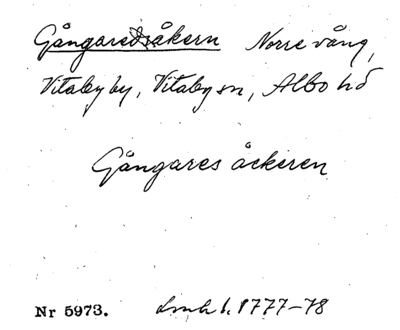 Gångaresåkern Norre vång,
Vitaby by, Vitaby sn, Albo hd
Gångares åckeren
Nr 5973. Lmh 1. 1777-78